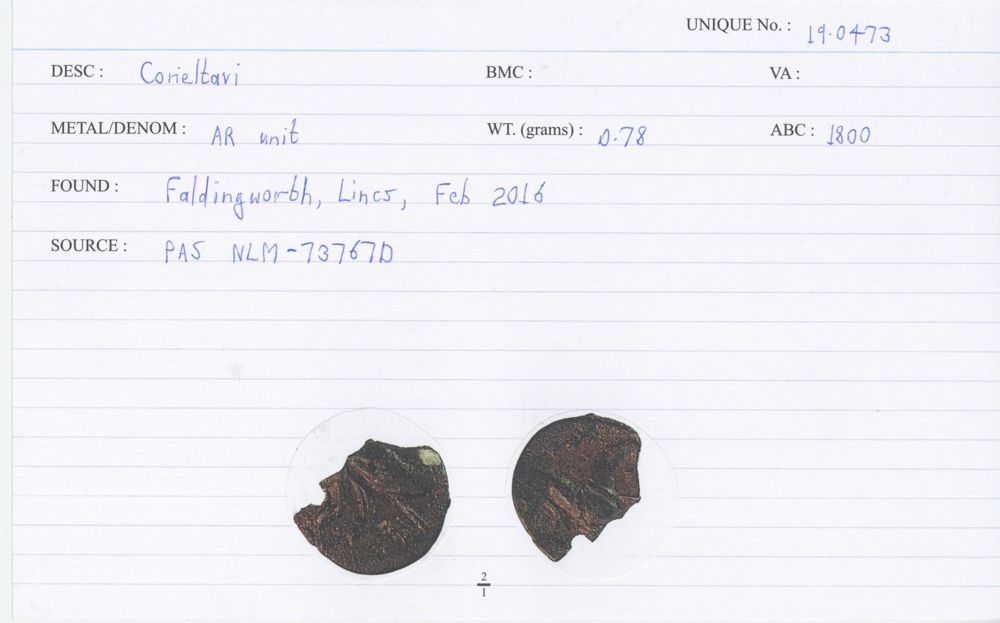 UNIQUE No. : 19.0473
DESC : Corieltavi BMC : VA :
METAL/DENOM : AR unit WT. (grams) : 0.78 ABC : 1800
FOUND : Faldingworth, Lincs, Feb 2016
SOURCE : PAS NLM-73767D
2
1